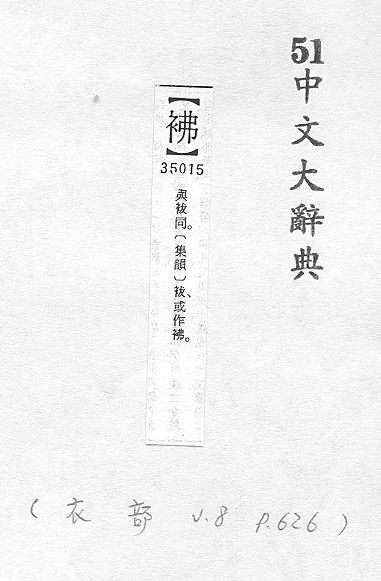 51中文大辭典
【袚】
35015
與袚同。〔集韻〕袚、或作袚。
(衣部 v.8 p.626)